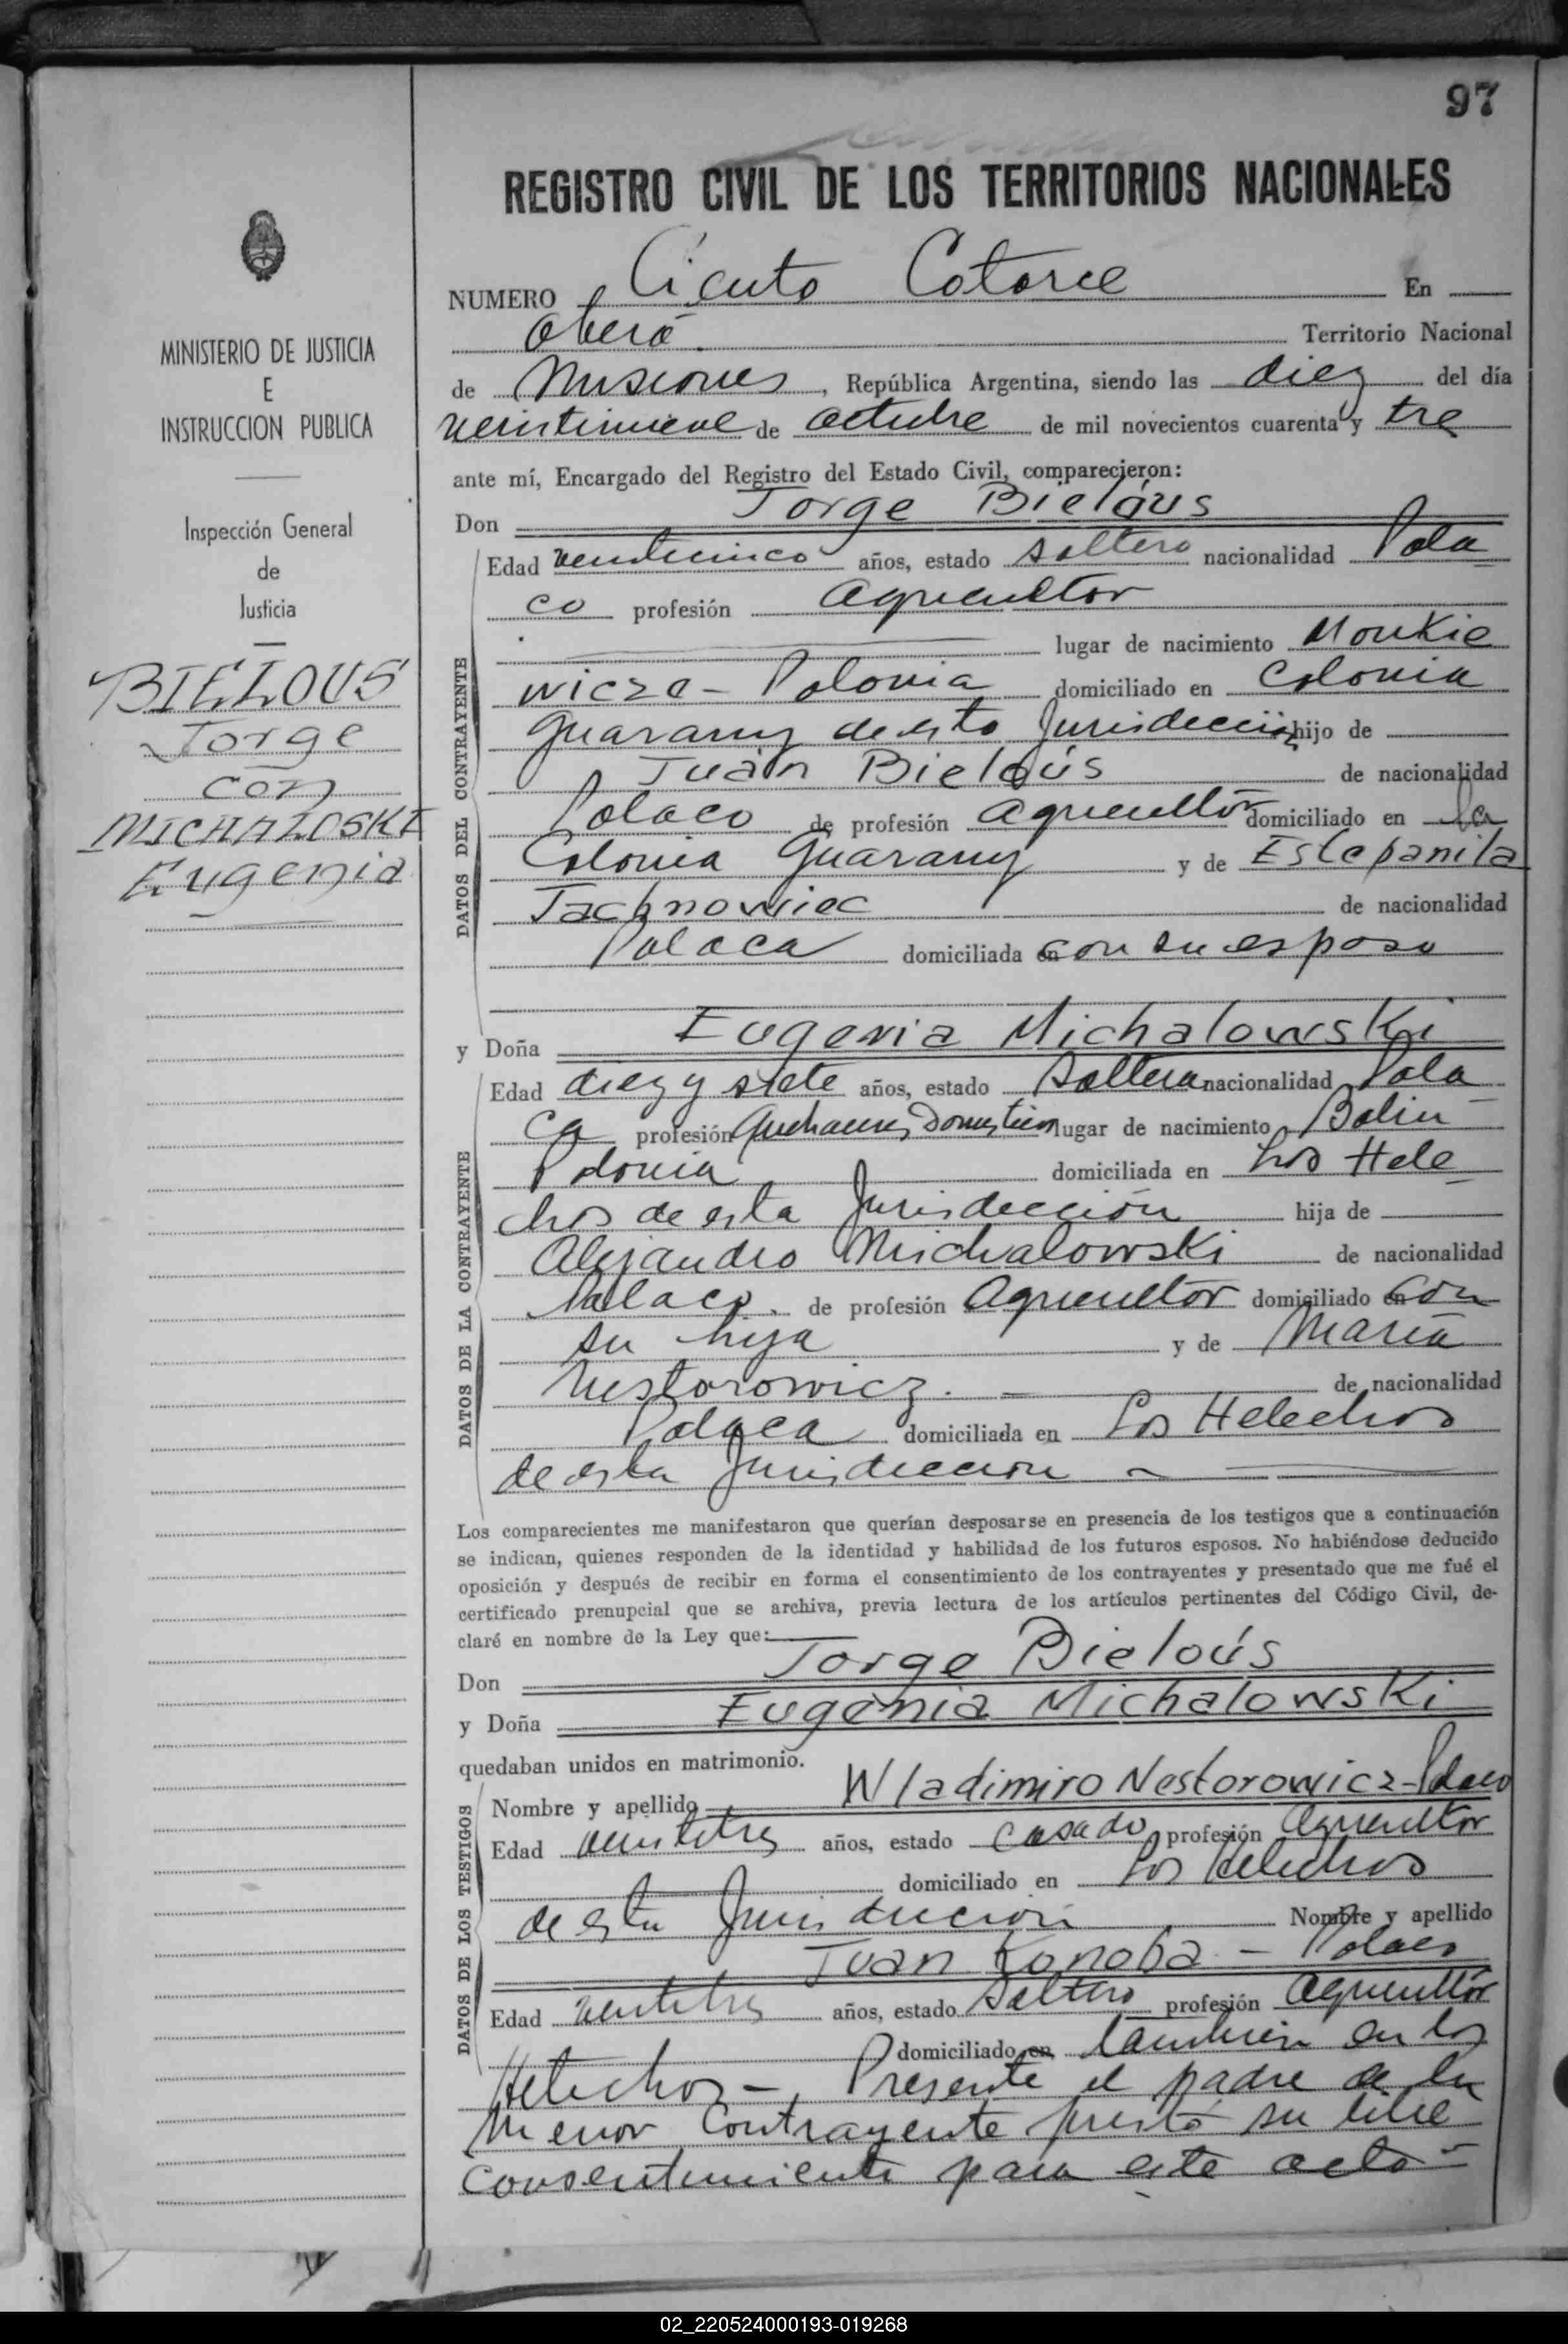 97
REGISTRO CIVIL DE LOS TERRITORIOS NACIONALES
NUMERO Ciento Catorce En
Oberá Territorio Nacional
de Misiones, República Argentina, siendo las diez del día
veintinueve de octubre de mil novecientos cuarenta y tre
ante mí, Encargado del Registro del Estado Civil, comparecieron:
Don Jorge Bieloús
Edad veinticinco años, estado soltero nacionalidad Pola
co profesión agricultor
lugar de nacimiento Monkie
wicze - Polonia domiciliado en Colonia
Guarany de esta Jurisdicción hijo de
Juan Bieloús de nacionalidad
Polaco de profesión agricultor domiciliado en la
Colonia Guarany y de Estepanila
Jachnowiec de nacionalidad
Polaca domiciliada en con su esposo
y Doña Eugenia Michalowski
Edad diez y siete años, estado soltera nacionalidad Pola
ca profesión Quehaceres Domésticos lugar de nacimiento Bolin
Polonia domiciliada en Los Hele
chos de esta Jurisdicción hija de
Alejandro Michalowski de nacionalidad
Polaco. de profesión Agricultor domiciliado en con
su hija y de María
Nestorowicz. — de nacionalidad
Polaca domiciliada en Los Helechos
de esta Jurisdicción
Los comparecientes me manifestaron que querían desposarse en presencia de los testigos que a continuación
se indican, quienes responden de la identidad y habilidad de los futuros esposos. No habiéndose deducido
oposición y después de recibir en forma el consentimiento de los contrayentes y presentado que me fué el
certificado prenupcial que se archiva, previa lectura de los artículos pertinentes del Código Civil, de-
claré en nombre de la Ley que:
Don Jorge Bieloús
y Doña Eugenia Michalowski
quedaban unidos en matrimonio.
Nombre y apellido Wladimiro Nestorowicz - Polaco
Edad veintitres años, estado casado profesión agricultor
domiciliado en Los Helechos
de esta Jurisdicción Nombre y apellido
Juan Konoba - Polaco
Edad veintitres años, estado soltero profesión agricultor
domiciliado en también en los
Helechos -. Presente el padre de la
menor contrayente prestó su libre
consentimiento para este acto -
DATOS DEL CONTRAYENTE
DATOS DE LA CONTRAYENTE
DATOS DE LOS TESTIGOS
MINISTERIO DE JUSTICIA
E
INSTRUCCION PUBLICA
Inspección General
de
Justicia
BIELOUS
Jorge
con
MICHALOSKI
Eugenia
02_220524000193-019268